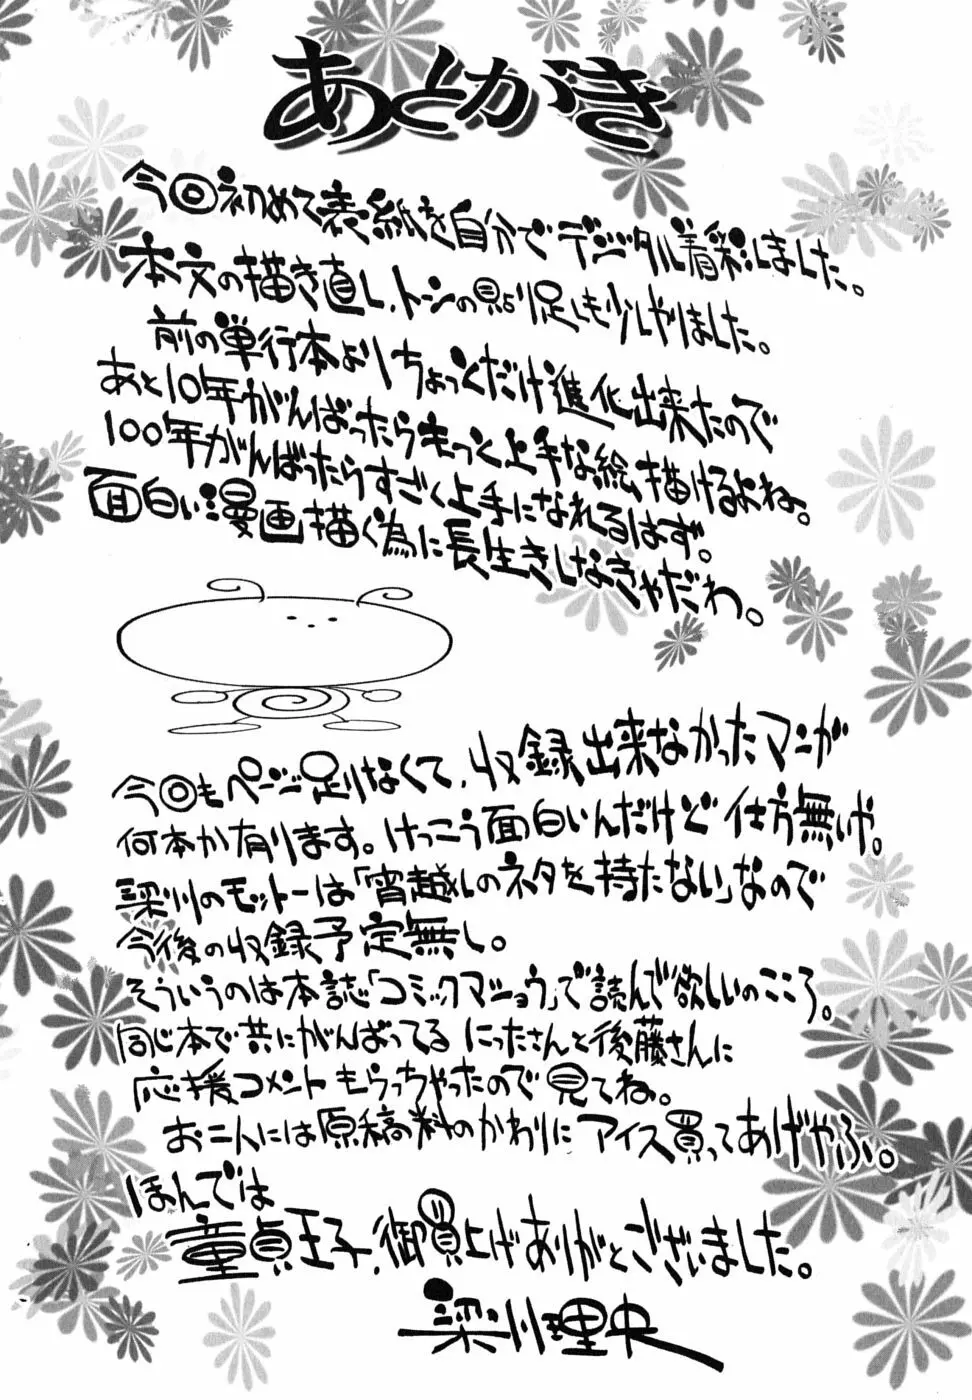 あとがき
今回初めて表紙を自分でデジタル着彩しました。
本文の描き直し、トーンの貼り足しも少しやりました。
前の単行本よりちょっくだけ進化出来たので
あと10年がんばったらもっと上手な絵描けるよね。
100年がんばったらすごく上手になれるはず。
面白い漫画描く為に長生きしなきゃだわ。
今回もページ足りなくて、収録出来なかったマンガ
何本か有ります。けっこう面白いんだけど仕方無いや。
梁川のモットーは「宵越しのネタを持たない」なので
今後の収録予定無し。
そういうのは本誌「コミックマショウ」で読んで欲しいのこころ。
同じ本で共にがんばってるにったさんと後藤さんに
応援コメントもらっちゃったので見てね。
お二人には原稿料のかわりにアイス買ってあげやふ。
ほんでは
童貞王子、御買上げありがとうございました。
梁川理央